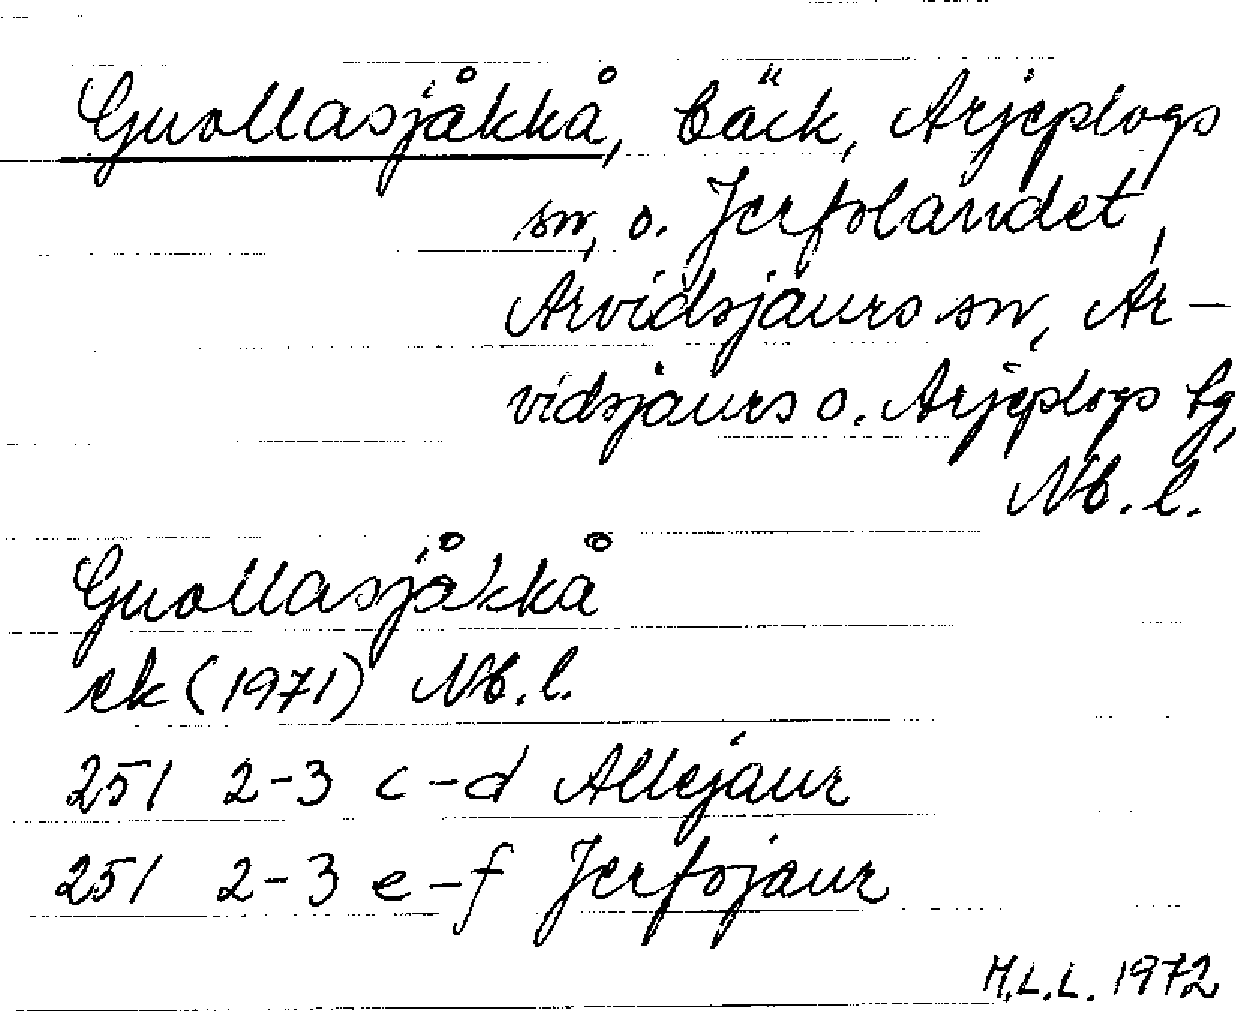 Guollasjåkkå, bäck, Arjeplogs
sn, o. Jerfolandet,
Arvidsjaurs sn, Ar-
vidsjaurs o. Arjeplogs tg,
Nb. l.
Guollasjåkkå
ek (1971) Nb. l.
251 2-3 c-d Allejaur
251 2-3 e-f Jerfojaur
M.L.L. 1972